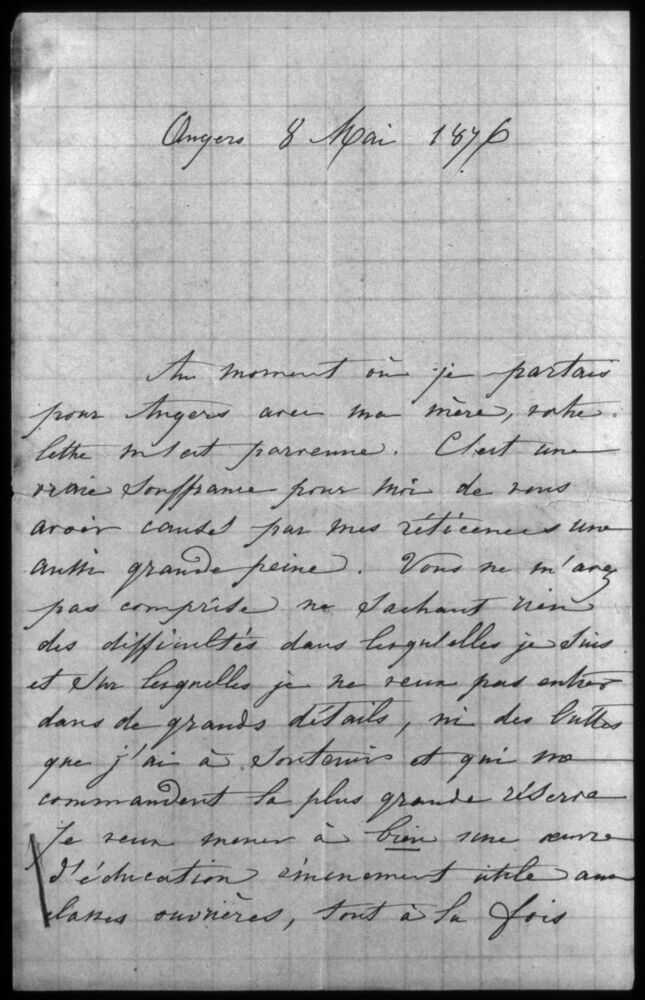 Angers 8 Mai 1876
Au moment où je partais
pour Angers avec ma mère, votre
lettre m'est parvenue. C'est une
vraie souffrance pour moi de vous
avoir causé par mes réticences une
aussi grande peine. Vous ne m'avez
pas comprise ne sachant rien
des difficultés dans lesquelles je suis
et sur lesquelles je ne veux pas entrer
dans de grands détails, ni des luttes
que j'ai à soutenir et qui me
commandent la plus grande réserve
Je veux mener à bien une œuvre
d'éducation éminemment utile aux
classes ouvrières, tout à la fois